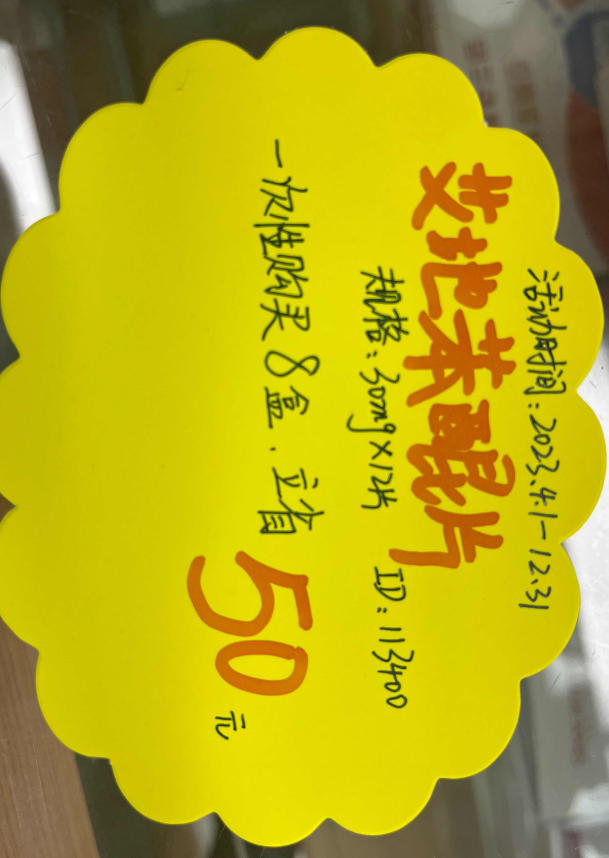 活动时间:2023.4.1-12.31
艾地苯醌片
规格:30mg×12片 ID:113400
一次性购买8盒、立省50元